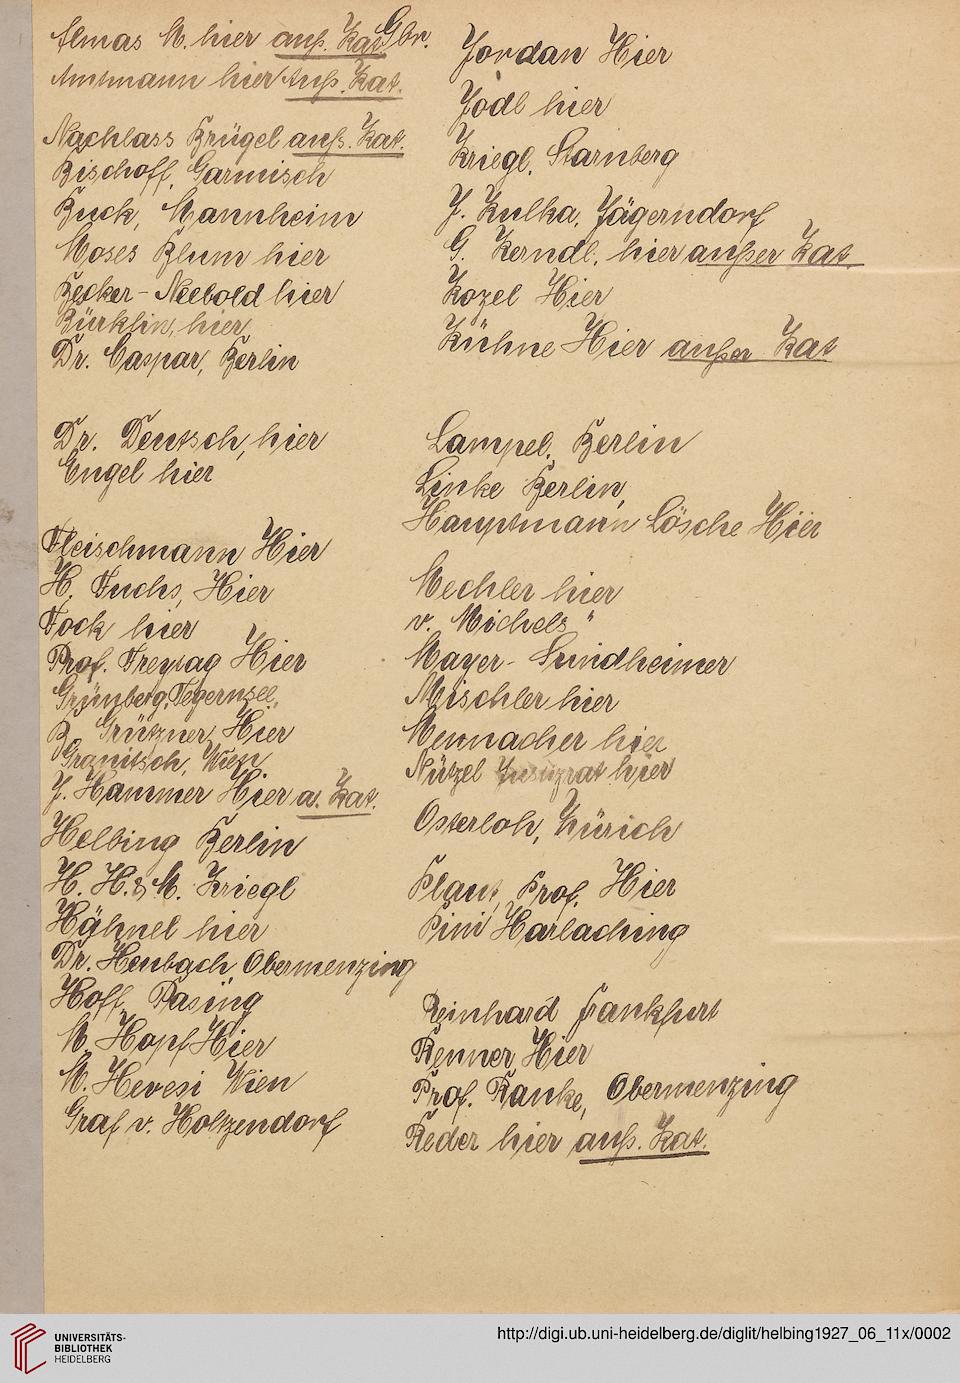 Almas M. hier auß. Kat. Gbr.
Amtmann hier Auß. Kat.
Nachlass Brügel auß. Kat.
Bischoff, Garmisch
Buck, Mannheim
Moses Blum hier
Becker-Neebold hier
Bürklin, hier
Dr. Caspar, Berlin
Dr. Deutsch, hier
Engel hier
Fleischmann Hier
H. Fuchs, Hier
Fock hier
Prof. Freytag Hier
Grünberg, Tegernsee,
B. Grützner, Hier
Granitsch, Wien
J. Hammer Hier a. Kat.
Helbing Berlin
H. H. & M. Kriegl
Hähnel hier
Dr. Heubach, Obermenzing
Hoff, Pasing
M. Hopf Hier
M. Hevesi Wien
Graf v. Holtzendorf
Jordan Hier
Jodl hier
Kriegl, Starnberg
J. Kulka, Jägerndorf
G. Kerndl, hier außer Kat.
Kozel Hier
Kühne Hier außer Kat
Lampel, Berlin
Linke Berlin,
Hauptmann Lösche Hier
Mechler hier
v. Michels "
Mayer-Sundheimer
Mischler hier
Mennacher hier
Nützel Justizrat hier
Osterloh, Zürich
Plaut, Prof. Hier
Pini Harlaching
Reinhard Frankfurt
Renner, Hier
Prof. Ranke, Obermenzing
Reder hier auß. Kat.
UNIVERSITÄTS-
BIBLIOTHEK
HEIDELBERG
http://digi.ub.uni-heidelberg.de/diglit/helbing1927_06_11x/0002